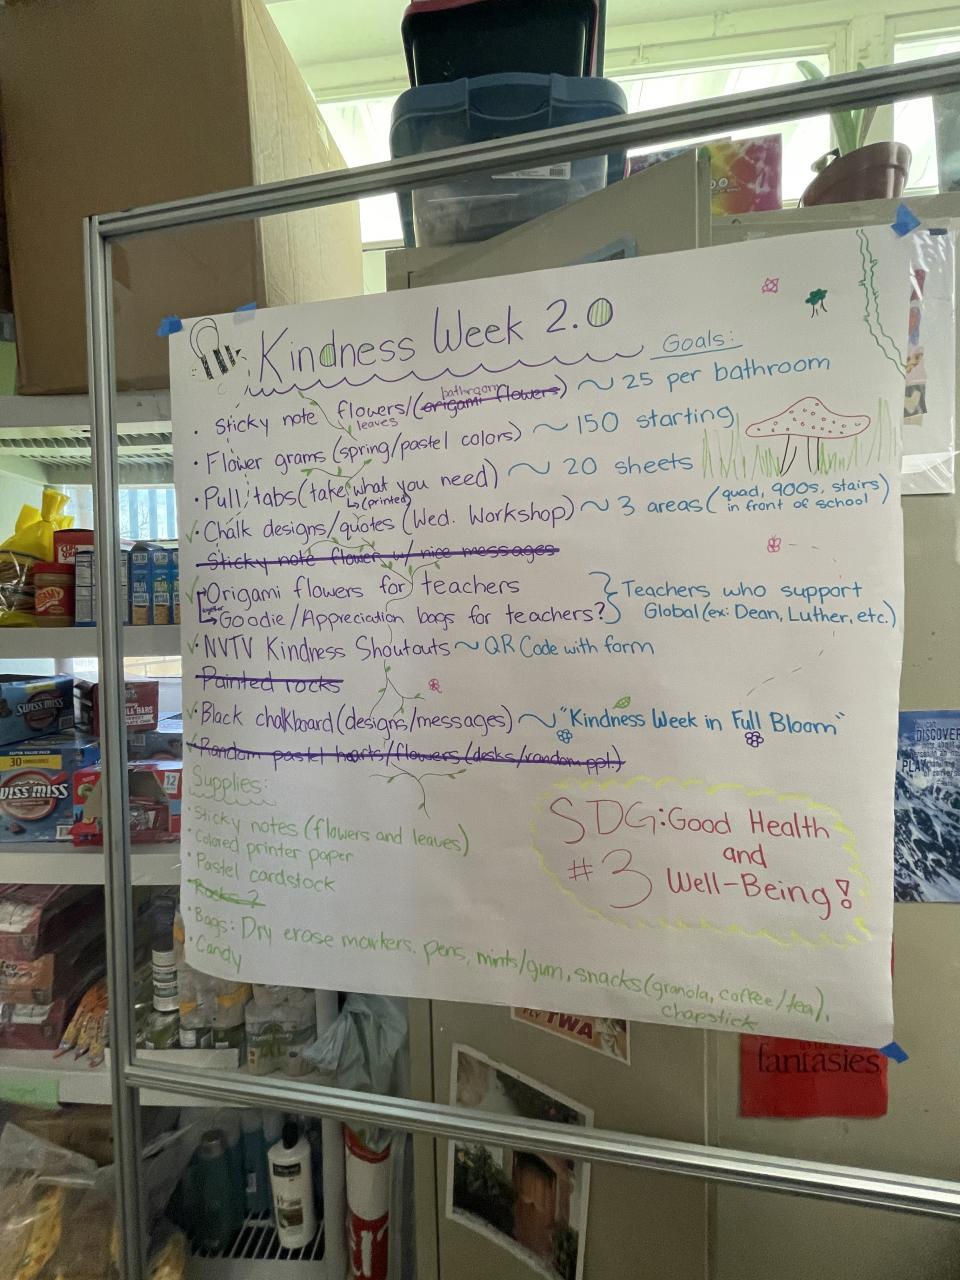 Kindness Week 2.0
Goals:
• Sticky note flowers/(origami flowers) ~ 25 per bathroom
bathroom
leaves
• Flower grams (spring/pastel colors) ~ 150 starting
• Pull tabs (take what you need) ~ 20 sheets
↳(printed)
✓ Chalk designs/quotes (Wed. Workshop) ~ 3 areas (quad, 900s, stairs)
in front of school
Sticky note flower w/ nice messages
✓ Origami flowers for teachers
together
↳ Goodie/Appreciation bags for teachers?
} Teachers who support
Global (ex: Dean, Luther, etc.)
✓ NVTV Kindness Shoutouts ~ QR Code with form
Painted rocks
✓ Black chalkboard (designs/messages) ~ "Kindness Week in Full Bloom"
Random pastel hearts/flowers (desks/random ppl.)
Supplies:
• Sticky notes (flowers and leaves)
• Colored printer paper
• Pastel cardstock
• Rocks ?
• Bags: Dry erase markers, pens, mints/gum, snacks (granola, coffee/tea),
chapstick
• Candy
SDG: Good Health
#3 and
Well-Being!
SWISS MISS
30
SWISS MISS
12
DISCOVER
PLAY
FLY TWA
fantasies